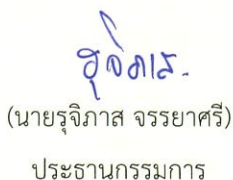 รุจิภาส
(นายรุจิภาส จรรยาศรี)
ประธานกรรมการ